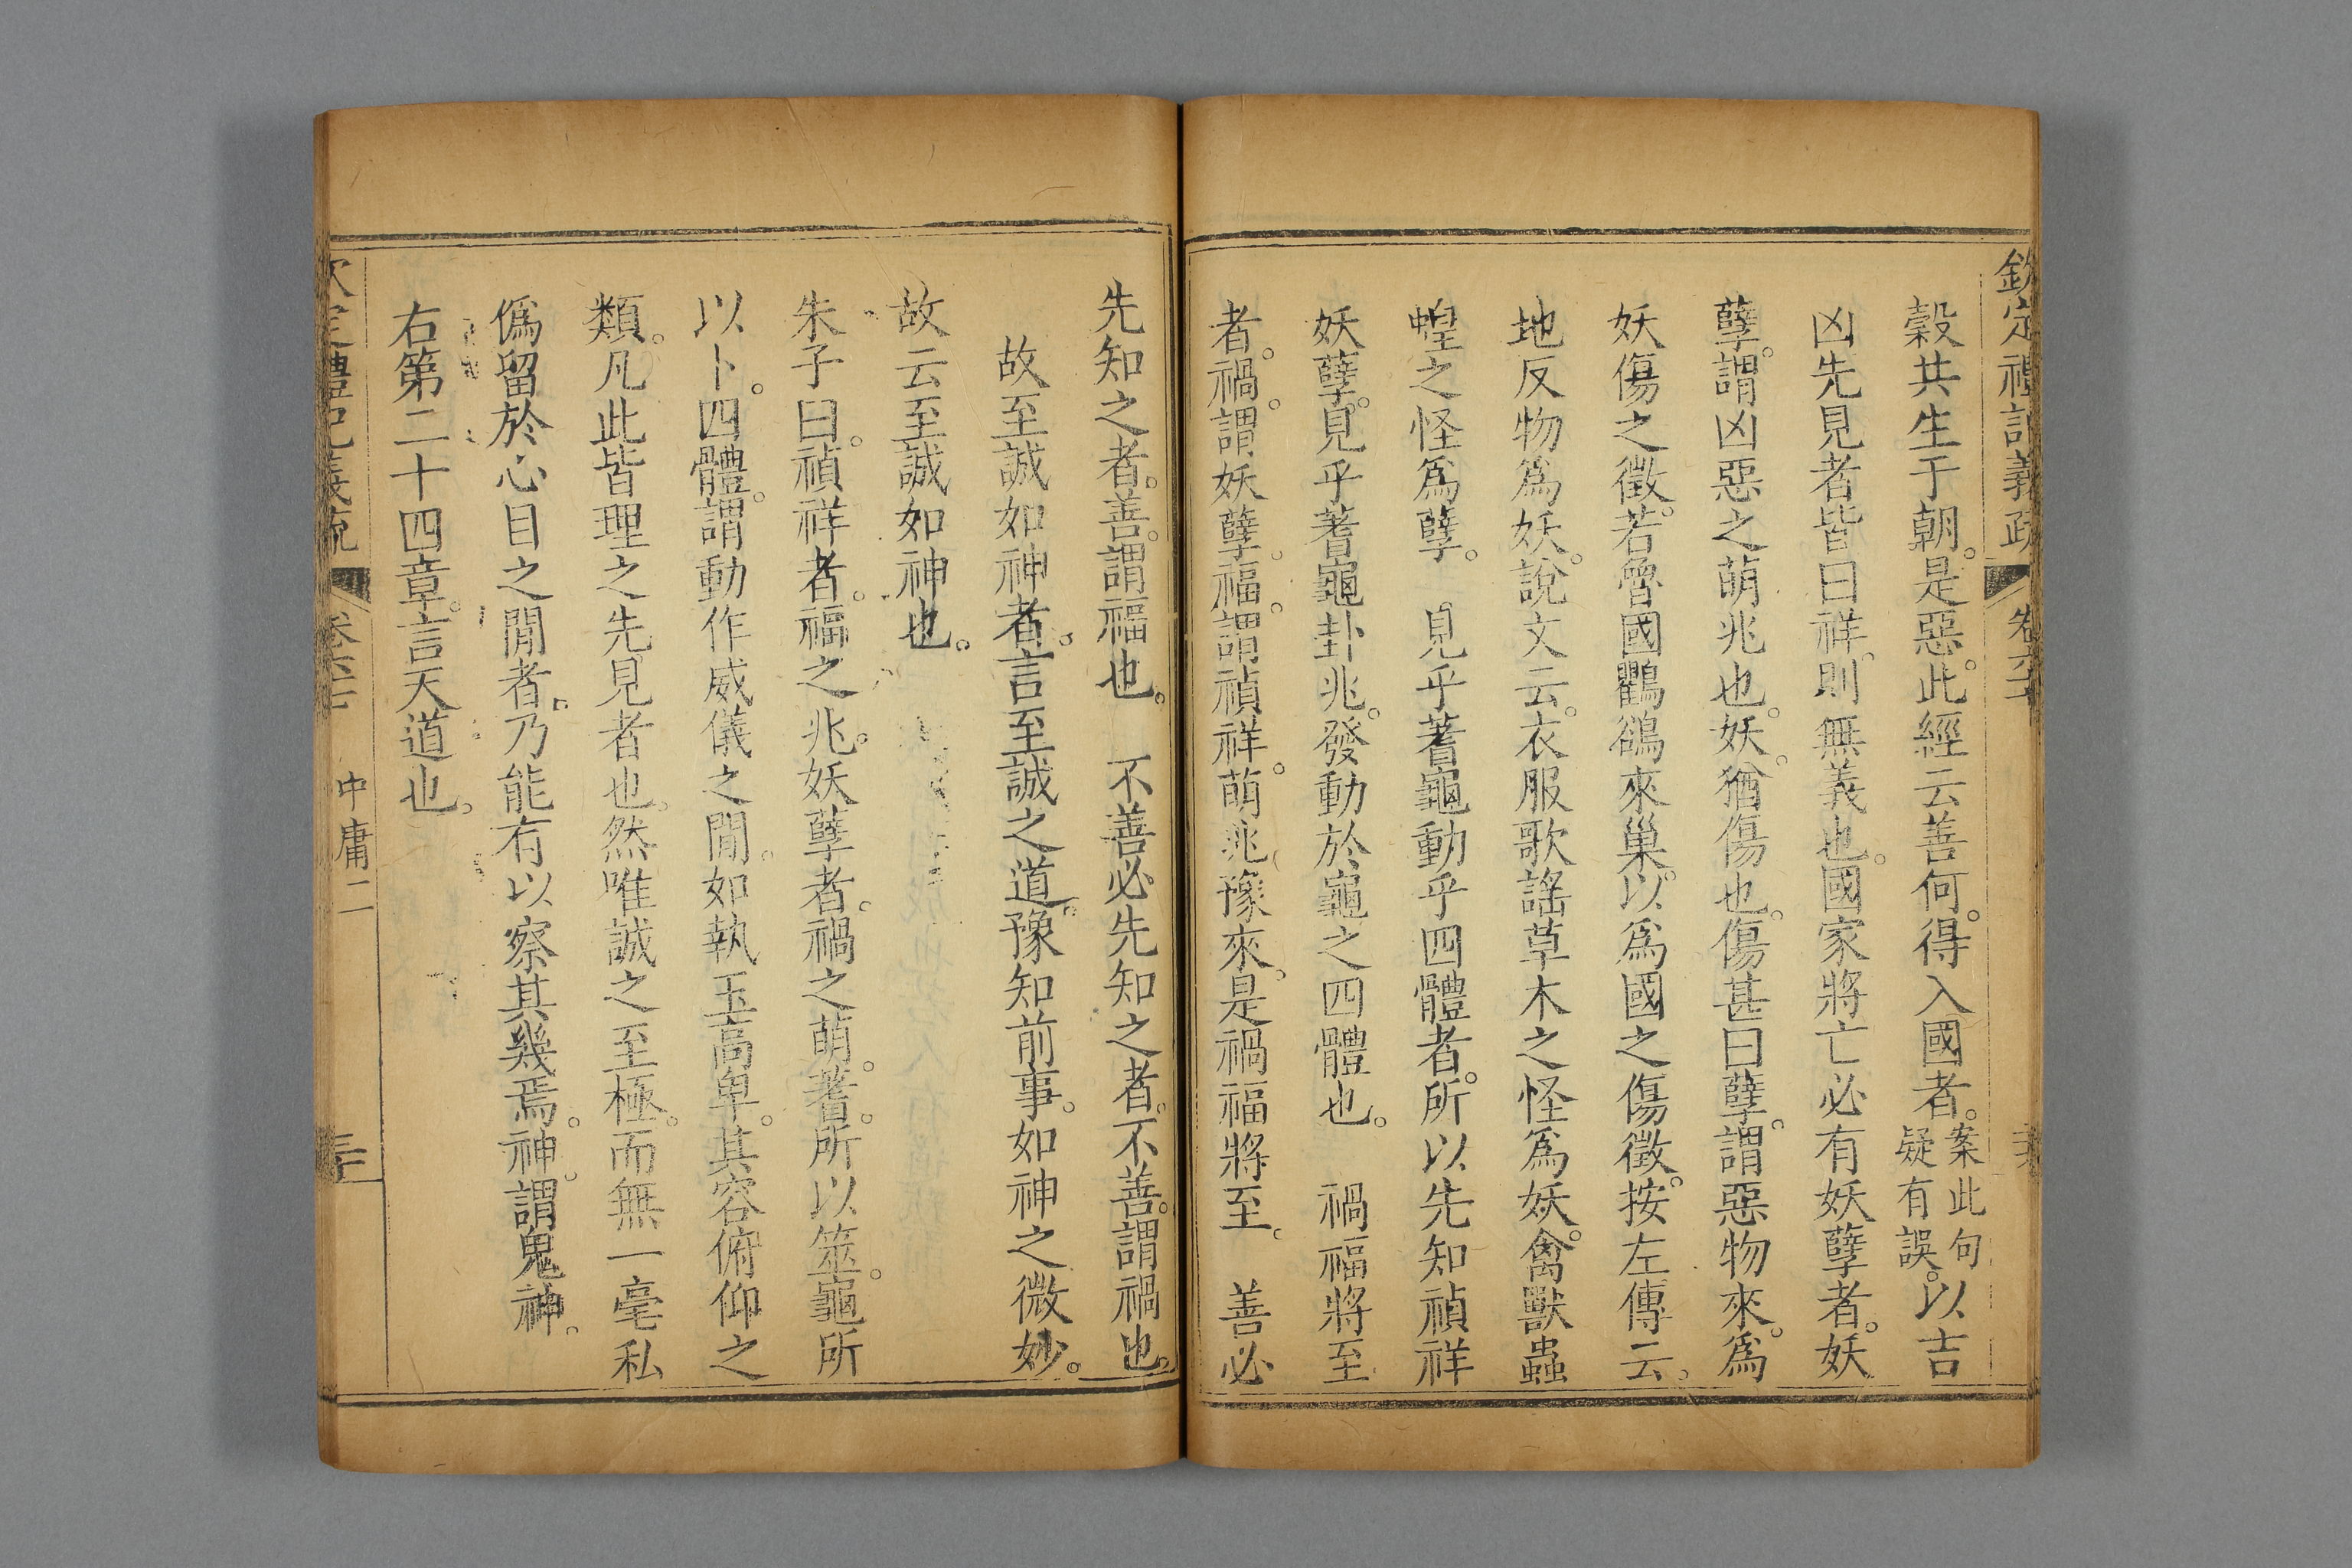 欽定禮記義疏 卷六
穀共生于朝。是惡。此經云善何。得入國者。案此句疑有誤。以吉
凶先見者。皆曰祥。則無義也。國家將亡必有妖孽者。妖
孽。謂凶惡之萌兆也。妖。猶傷也。傷甚曰孽。謂惡物來。爲
妖傷之徵。若魯國鸜鵒來巢。以爲國之傷徵。按左傳云。
地反物爲妖。說文云。衣服歌謠草木之怪爲妖。禽獸蟲
蝗之怪爲孽。 見乎蓍龜動乎四體者。所以先知禎祥
妖孽。見乎蓍龜卦兆。發動於龜之四體也。 禍福將至
者。禍。謂妖孽。福。謂禎祥。萌兆豫來。是禍福將至。 善必
先知之者。善。謂福也。 不善必先知之者。不善。謂禍也。
故至誠如神者。言至誠之道。豫知前事。如神之微妙。
故云至誠如神也。
朱子曰。禎祥者。福之兆。妖孽者。禍之萌。蓍。所以筮。龜所
以卜。四體。謂動作威儀之閒。如執玉高卑。其容俯仰之
類。凡此皆理之先見者也。然唯誠之至極。而無一毫私
僞留於心目之閒者。乃能有以察其幾焉。神。謂鬼神。
右第二十四章。言天道也。
中庸二